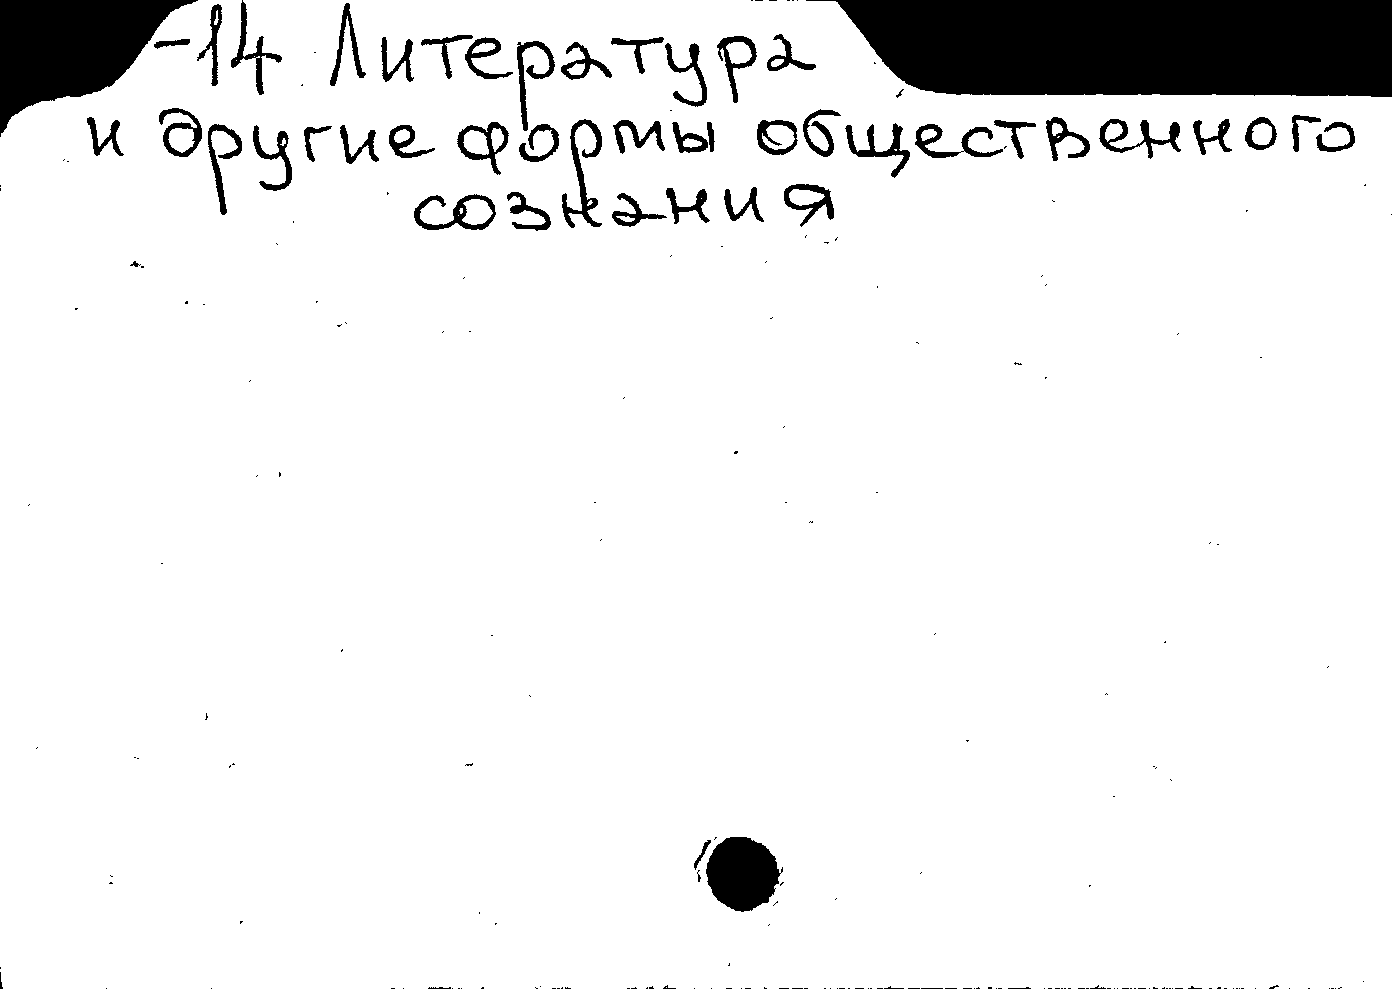 -14 Литература
и другие формы общественного
сознания